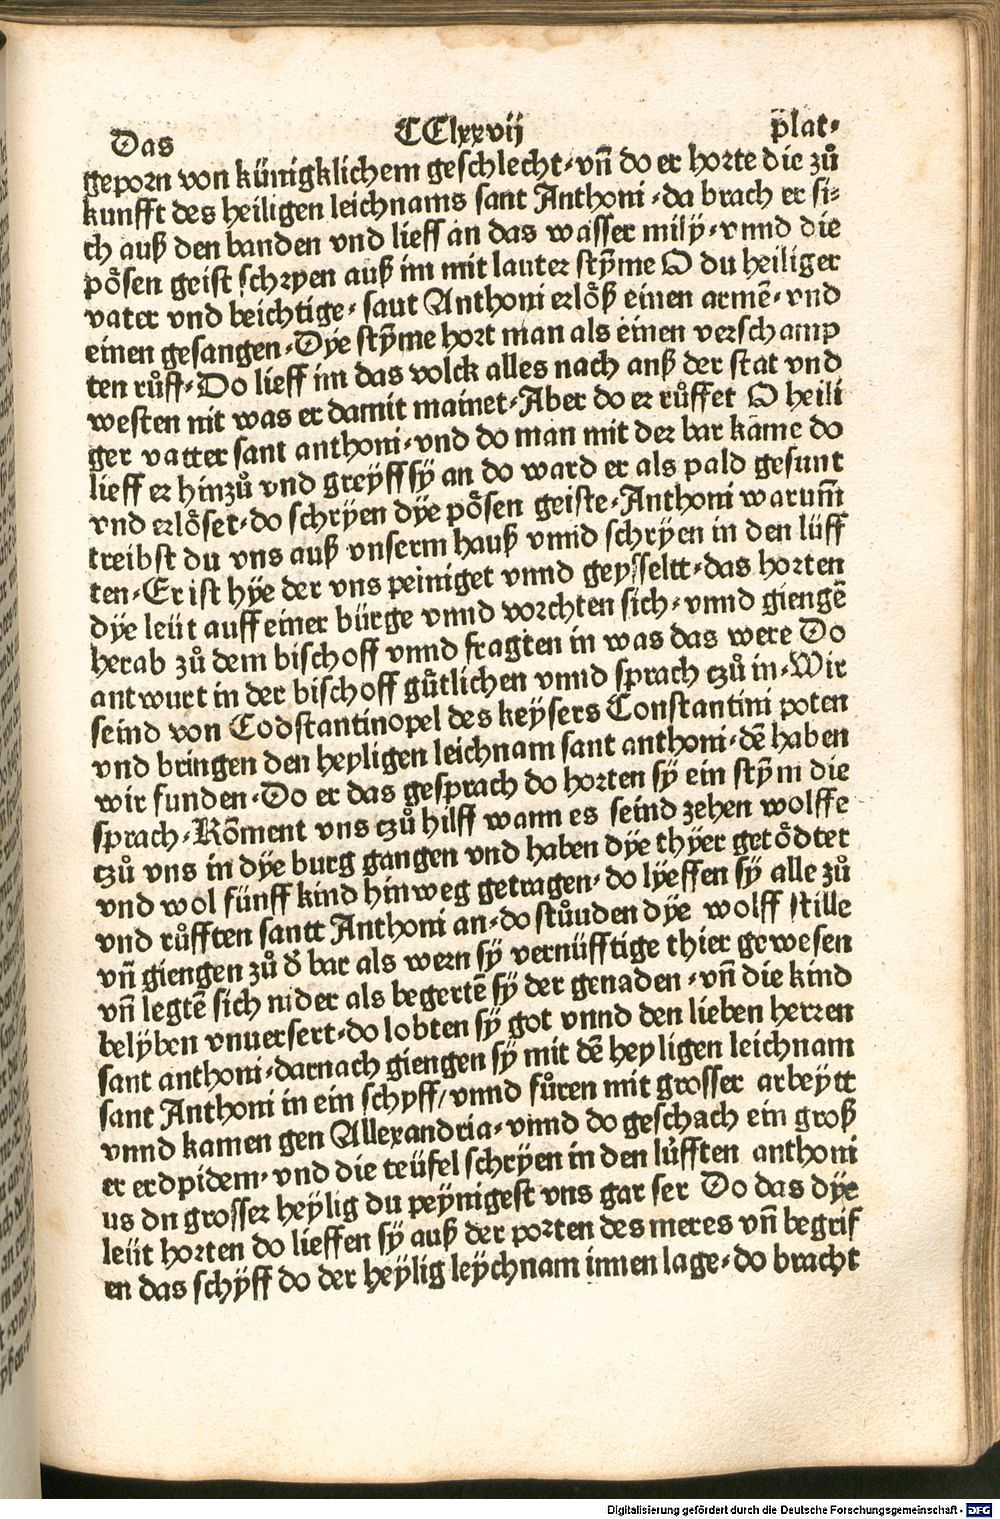 Das CClxxvij plat·
geporn von künigklichem geschlecht·vñ do er horte die zů
kunfft des heiligen leichnams sant Anthoni·da brach er si-
ch auß den banden vnd lieff an das wasser milÿ·vnnd die
pôsen geist schryen auß im mit lauter stÿme O du heiliger
vater vnd beichtige·saut Anthoni erlôß einen armẽ·vnd
einen gesangen·Dÿe stÿme hort man als einen verschamp
ten růff·Do lieff im das volck alles nach anß der stat vnd
westen nit was er damit mainet·Aber do er růffet O heili
ger vatter sant anthoni·vnd do man mit der bar kame do
lieff er hinzů vnd greÿff sÿ an do ward er als pald gesunt
vnd erlôset·do schrÿen dÿe pôsen geiste·Anthoni warum̃
treibst du vns auß vnserm hauß vnnd schrÿen in den lüff
ten·Er ist hÿe der vns peiniget vnnd geysseltt·das horten
dÿe leüt auff einer bürge vnnd vorchten sich·vnnd giengẽ
herab zů dem bischoff vnnd fragten in was das were Do
antwurt in der bischoff gütlichen vnnd sprach czů in·Wir
seind von Codstantinopel des keÿsers Constantini poten
vnd bringen den heyligen leichnam sant anthoni·dẽ haben
wir funden·Do er das gesprach do horten sÿ ein stÿm die
sprach·Kõment vns czů hilff wann es seind zehen wolffe
czů vns in dÿe burg gangen vnd haben dÿe thÿer getôdter
vnd wol fünff kind hinweg getragen·do lÿeffen sÿ alle zů
vnd růfften santt Anthoni an·do stůuden dÿe wolff stille
vñ giengen zů đ bar als wern sÿ vernüfftige thier gewesen
vñ legtẽ sich nider als begertẽ sÿ der genaden·vñ die kind
belÿben vnuersert·do lobten sÿ got vnnd den lieben herren
sant anthoni·darnach giengen sÿ mit dẽ heyligen leichnam
sant Anthoni in ein schyff/vnnd fůren mit grosser arbeÿtt
vnnd kamen gen Allexandria·vnnd do geschach ein groß
er erdpidem·vnd die teüfel schrÿen in den lüfften anthoni
us dn grosser heÿlig du peÿnigest vns gar ser Do das dÿe
leüt horten do lieffen sÿ auß der porten des meres vñ begrif
en das schÿff do der heÿlig leÿchnam innen lage·do bracht
Digitalisierung gefördert durch die Deutsche Forschungsgemeinschaft - DFG